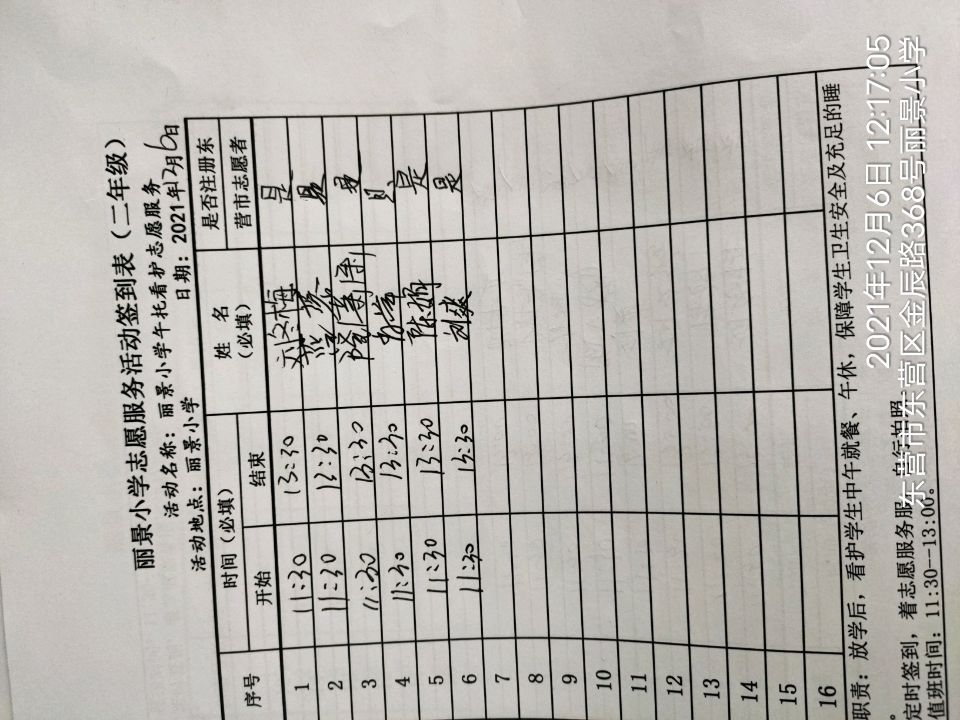 丽景小学志愿服务活动签到表（二年级）
活动名称：丽景小学午托看护志愿服务
活动地点：丽景小学 日期：2021年12月6日
序号 时间（必填） 姓名（必填） 是否注册东营市志愿者
开始 结束
1 11:30 13:30 刘冬梅 是
2 11:30 13:30 是
3 11:30 13:30 是
4 11:30 13:30 是
5 11:30 13:30 是
6 11:30 13:30 是
7
8
9
10
11
12
13
14
15
16
职责：放学后，看护学生中午就餐、午休，保障学生卫生安全及充足的睡
定时签到，着志愿服务服，自行拍照
值班时间：11:30--13:00。
2021年12月6日 12:17:05
东营市东营区金辰路368号丽景小学